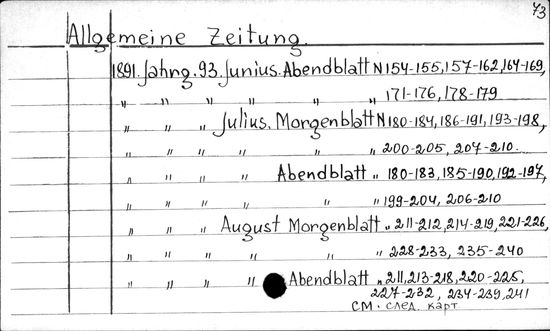 73
Allgemeine Zeitung.
1891. Jahrg. 93. Junius. Abendblatt N 154-155, 157-162, 164-169,
" " " " " " 171-176, 178-179
" " " Julius. Morgenblatt N 180-184, 186-191, 193-198,
" " " " " " 200-205, 207-210
" " " " Abendblatt " 180-183, 185-190, 192-197,
" " " " " " 199-204, 206-210
" " " August Morgenblatt " 211-212, 214-219, 221-226,
" " " " " " 228-233, 235-240
" " " " Abendblatt " 211, 213-218, 220-225,
227-232, 234-239, 241
см. след. карт.